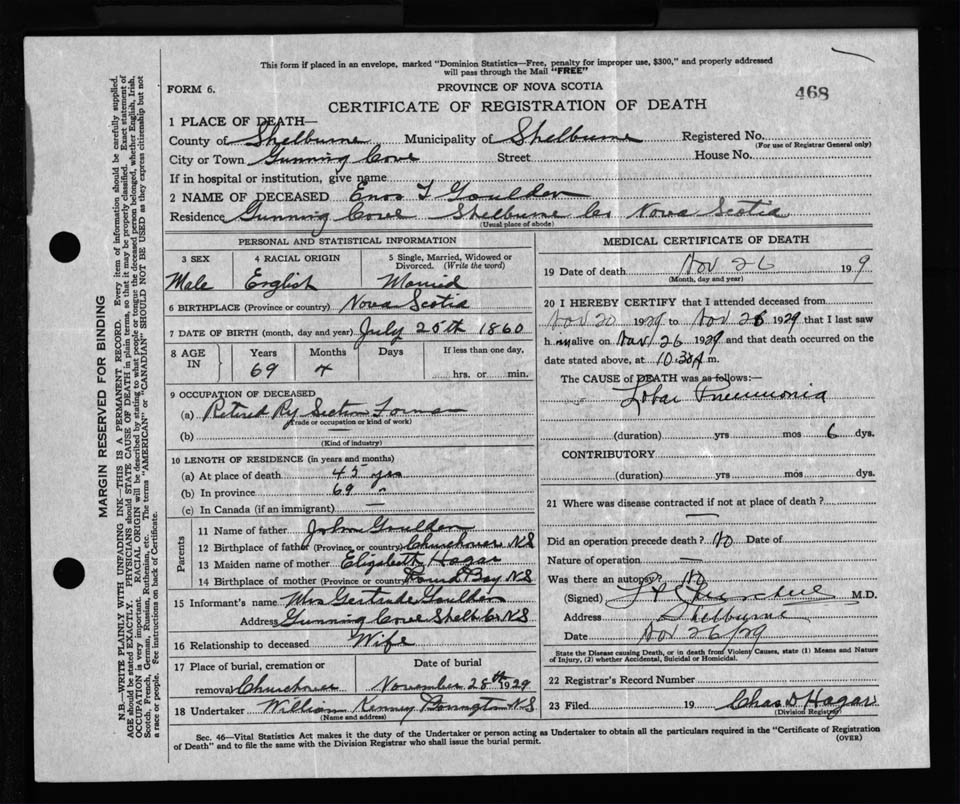 This form if placed in an envelope, marked "Dominion Statistics—Free, penalty for improper use, $300," and properly addressed
will pass through the Mail "FREE"
FORM 6.
PROVINCE OF NOVA SCOTIA
468
CERTIFICATE OF REGISTRATION OF DEATH
1 PLACE OF DEATH—
County of Shelburne Municipality of Shelburne Registered No.
(For use of Registrar General only)
City or Town Gunning Cove Street House No.
If in hospital or institution, give name
2 NAME OF DECEASED Enos T Goulden
Residence Gunning Cove Shelburne Co Nova Scotia
(Usual place of abode)
PERSONAL AND STATISTICAL INFORMATION
3 SEX 4 RACIAL ORIGIN 5 Single, Married, Widowed or
Divorced. (Write the word)
Male English Married
6 BIRTHPLACE (Province or country) Nova Scotia
7 DATE OF BIRTH (month, day and year) July 25th 1860
8 AGE IN Years Months Days If less than one day,
69 4 hrs. or min.
9 OCCUPATION OF DECEASED
(a) Retired Ry Section Forman
(Trade or occupation or kind of work)
(b)
(Kind of industry)
10 LENGTH OF RESIDENCE (in years and months)
(a) At place of death 45 yrs
(b) In province 69 "
(c) In Canada (if an immigrant) —
Parents
11 Name of father John Goulden
12 Birthplace of father (Province or country) Churchover N.S
13 Maiden name of mother Elizabeth Hagar
14 Birthplace of mother (Province or country) Round Bay N.S
15 Informant's name Mrs Gertrude Goulden
Address Gunning Cove Shelb Co N.S
16 Relationship to deceased Wife
17 Place of burial, cremation or Date of burial
removal Churchover November 28th 1929
18 Undertaker William Kenney N.S
(Name and address)
MEDICAL CERTIFICATE OF DEATH
19 Date of death Nov 26 19 9
(Month, day and year)
20 I HEREBY CERTIFY that I attended deceased from
Nov 20 1929 to Nov 26 1929 that I last saw
h im alive on Nov 26 1929 and that death occurred on the
date stated above, at 10.30 A m.
The CAUSE of DEATH was as follows:—
Lobar Pneumonia
(duration) yrs mos 6 dys.
CONTRIBUTORY
(duration) yrs mos dys.
21 Where was disease contracted if not at place of death?
—
Did an operation precede death? No Date of
Nature of operation —
Was there an autopsy? No
(Signed) M.D.
Address Shelburne
Date Nov 26/29
State the Disease causing Death, or in death from Violent Causes, state (1) Means and Nature
of Injury, (2) whether Accidental, Suicidal or Homicidal.
22 Registrar's Record Number
23 Filed 19 Chas D Hagar
(Division Registrar)
Sec. 46—Vital Statistics Act makes it the duty of the Undertaker or person acting as Undertaker to obtain all the particulars required in the "Certificate of Registration
of Death" and to file the same with the Division Registrar who shall issue the burial permit. (OVER)
MARGIN RESERVED FOR BINDING
N.B.—WRITE PLAINLY WITH UNFADING INK—THIS IS A PERMANENT RECORD. Every item of information should be carefully supplied.
AGE should be stated EXACTLY. PHYSICIANS should STATE CAUSE OF DEATH in plain terms, so that it may be properly classified. Exact statement of
OCCUPATION is very important. RACIAL ORIGIN will be described by stating to what people or tongue the deceased person belonged, whether English, Irish,
Scotch, French, German, Russian, Ruthenian, etc. The terms "AMERICAN" or "CANADIAN" SHOULD NOT BE USED as they express citizenship but not
a race or people. See instructions on back of Certificate.